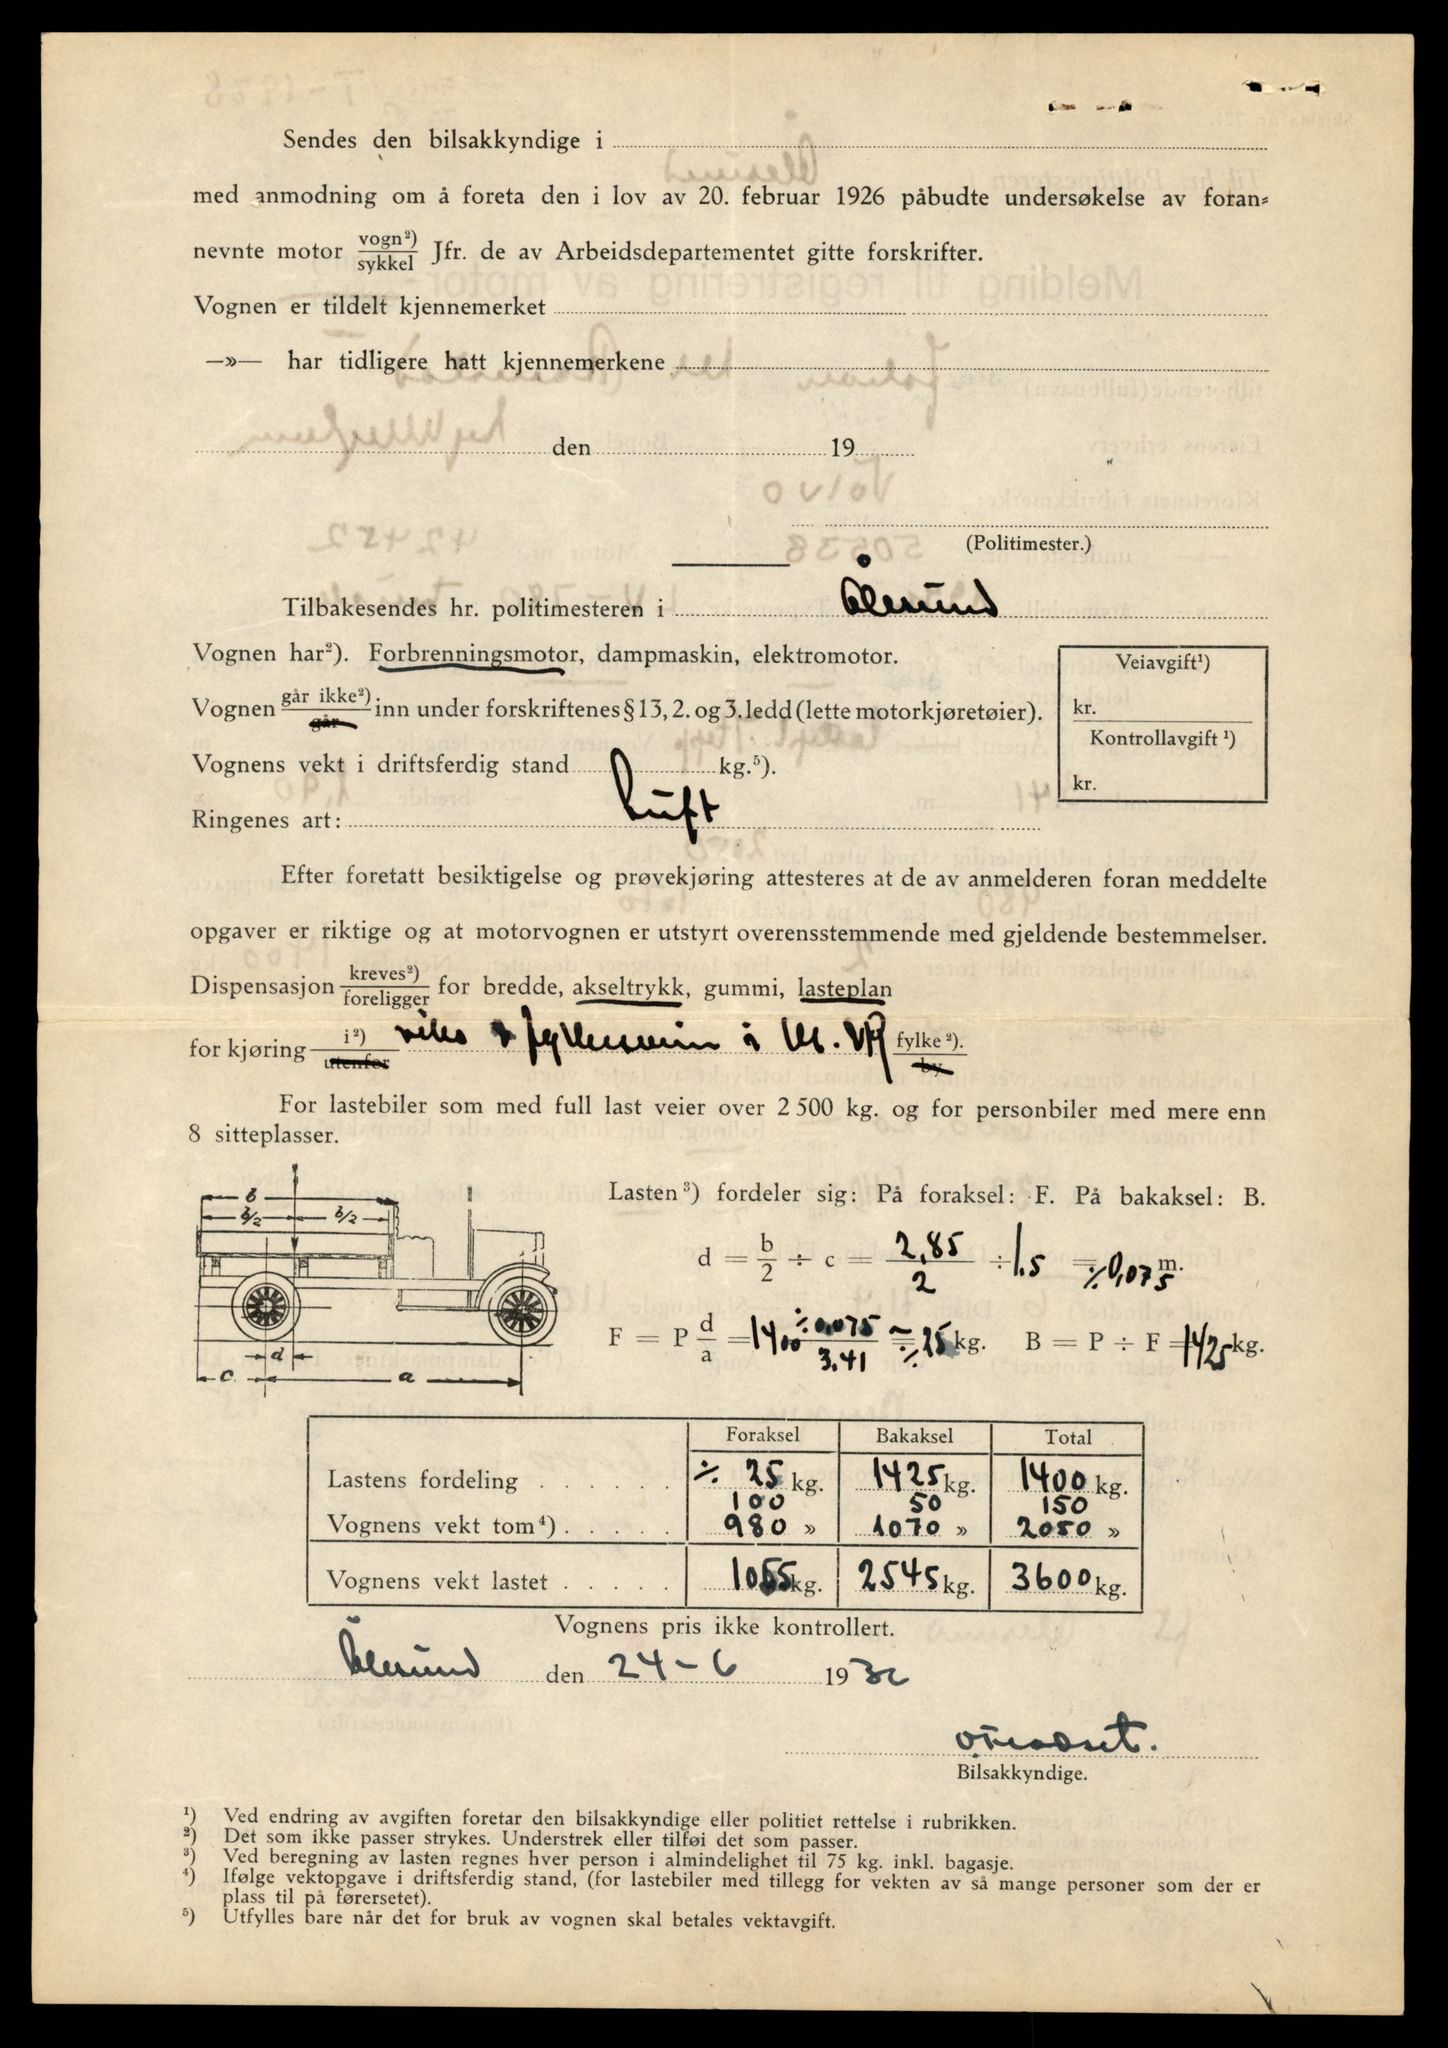 Sendes den bilsakkyndige i
med anmodning om å foreta den i lov av 20. februar 1926 påbudte undersøkelse av foran-
nevnte motor vogn²)/sykkel Jfr. de av Arbeidsdepartementet gitte forskrifter.
Vognen er tildelt kjennemerket
—»— har tidligere hatt kjennemerkene
den 19
(Politimester.)
Tilbakesendes hr. politimesteren i Ålesund
Vognen har²). Forbrenningsmotor, dampmaskin, elektromotor.
Veiavgift¹)
Vognen går ikke²)/går inn under forskriftenes § 13, 2. og 3. ledd (lette motorkjøretøier).
kr.
Kontrollavgift ¹)
Vognens vekt i driftsferdig stand kg.⁵).
kr.
Ringenes art: Luft
Efter foretatt besiktigelse og prøvekjøring attesteres at de av anmelderen foran meddelte
opgaver er riktige og at motorvognen er utstyrt overensstemmende med gjeldende bestemmelser.
Dispensasjon kreves²)/foreligger for bredde, akseltrykk, gummi, lasteplan
for kjøring i²)/utenfor i fylke²)./by
For lastebiler som med full last veier over 2 500 kg. og for personbiler med mere enn
8 sitteplasser.
b
b/2 b/2
d
c a
Lasten³) fordeler sig: På foraksel: F. På bakaksel: B.
d = b/2 ÷ c = 2,85/2 ÷ 1.5 = ÷ 0,075 m.
F = P d/a = 1400 ÷0,075/3.41 = ÷ 25 kg. B = P ÷ F = 1425 kg.
Foraksel Bakaksel Total
Lastens fordeling . . . . . . ÷ 25 kg. 1425 kg. 1400 kg.
100 50 150
Vognens vekt tom⁴) . . . . . 980 » 1070 » 2050 »
Vognens vekt lastet . . . . . 1055 kg. 2545 kg. 3600 kg.
Vognens pris ikke kontrollert.
Ålesund den 24-6 1936
Bilsakkyndige.
¹) Ved endring av avgiften foretar den bilsakkyndige eller politiet rettelse i rubrikken.
²) Det som ikke passer strykes. Understrek eller tilføi det som passer.
³) Ved beregning av lasten regnes hver person i almindelighet til 75 kg. inkl. bagasje.
⁴) Ifølge vektopgave i driftsferdig stand, (for lastebiler med tillegg for vekten av så mange personer som der er
plass til på førersetet).
⁵) Utfylles bare når det for bruk av vognen skal betales vektavgift.